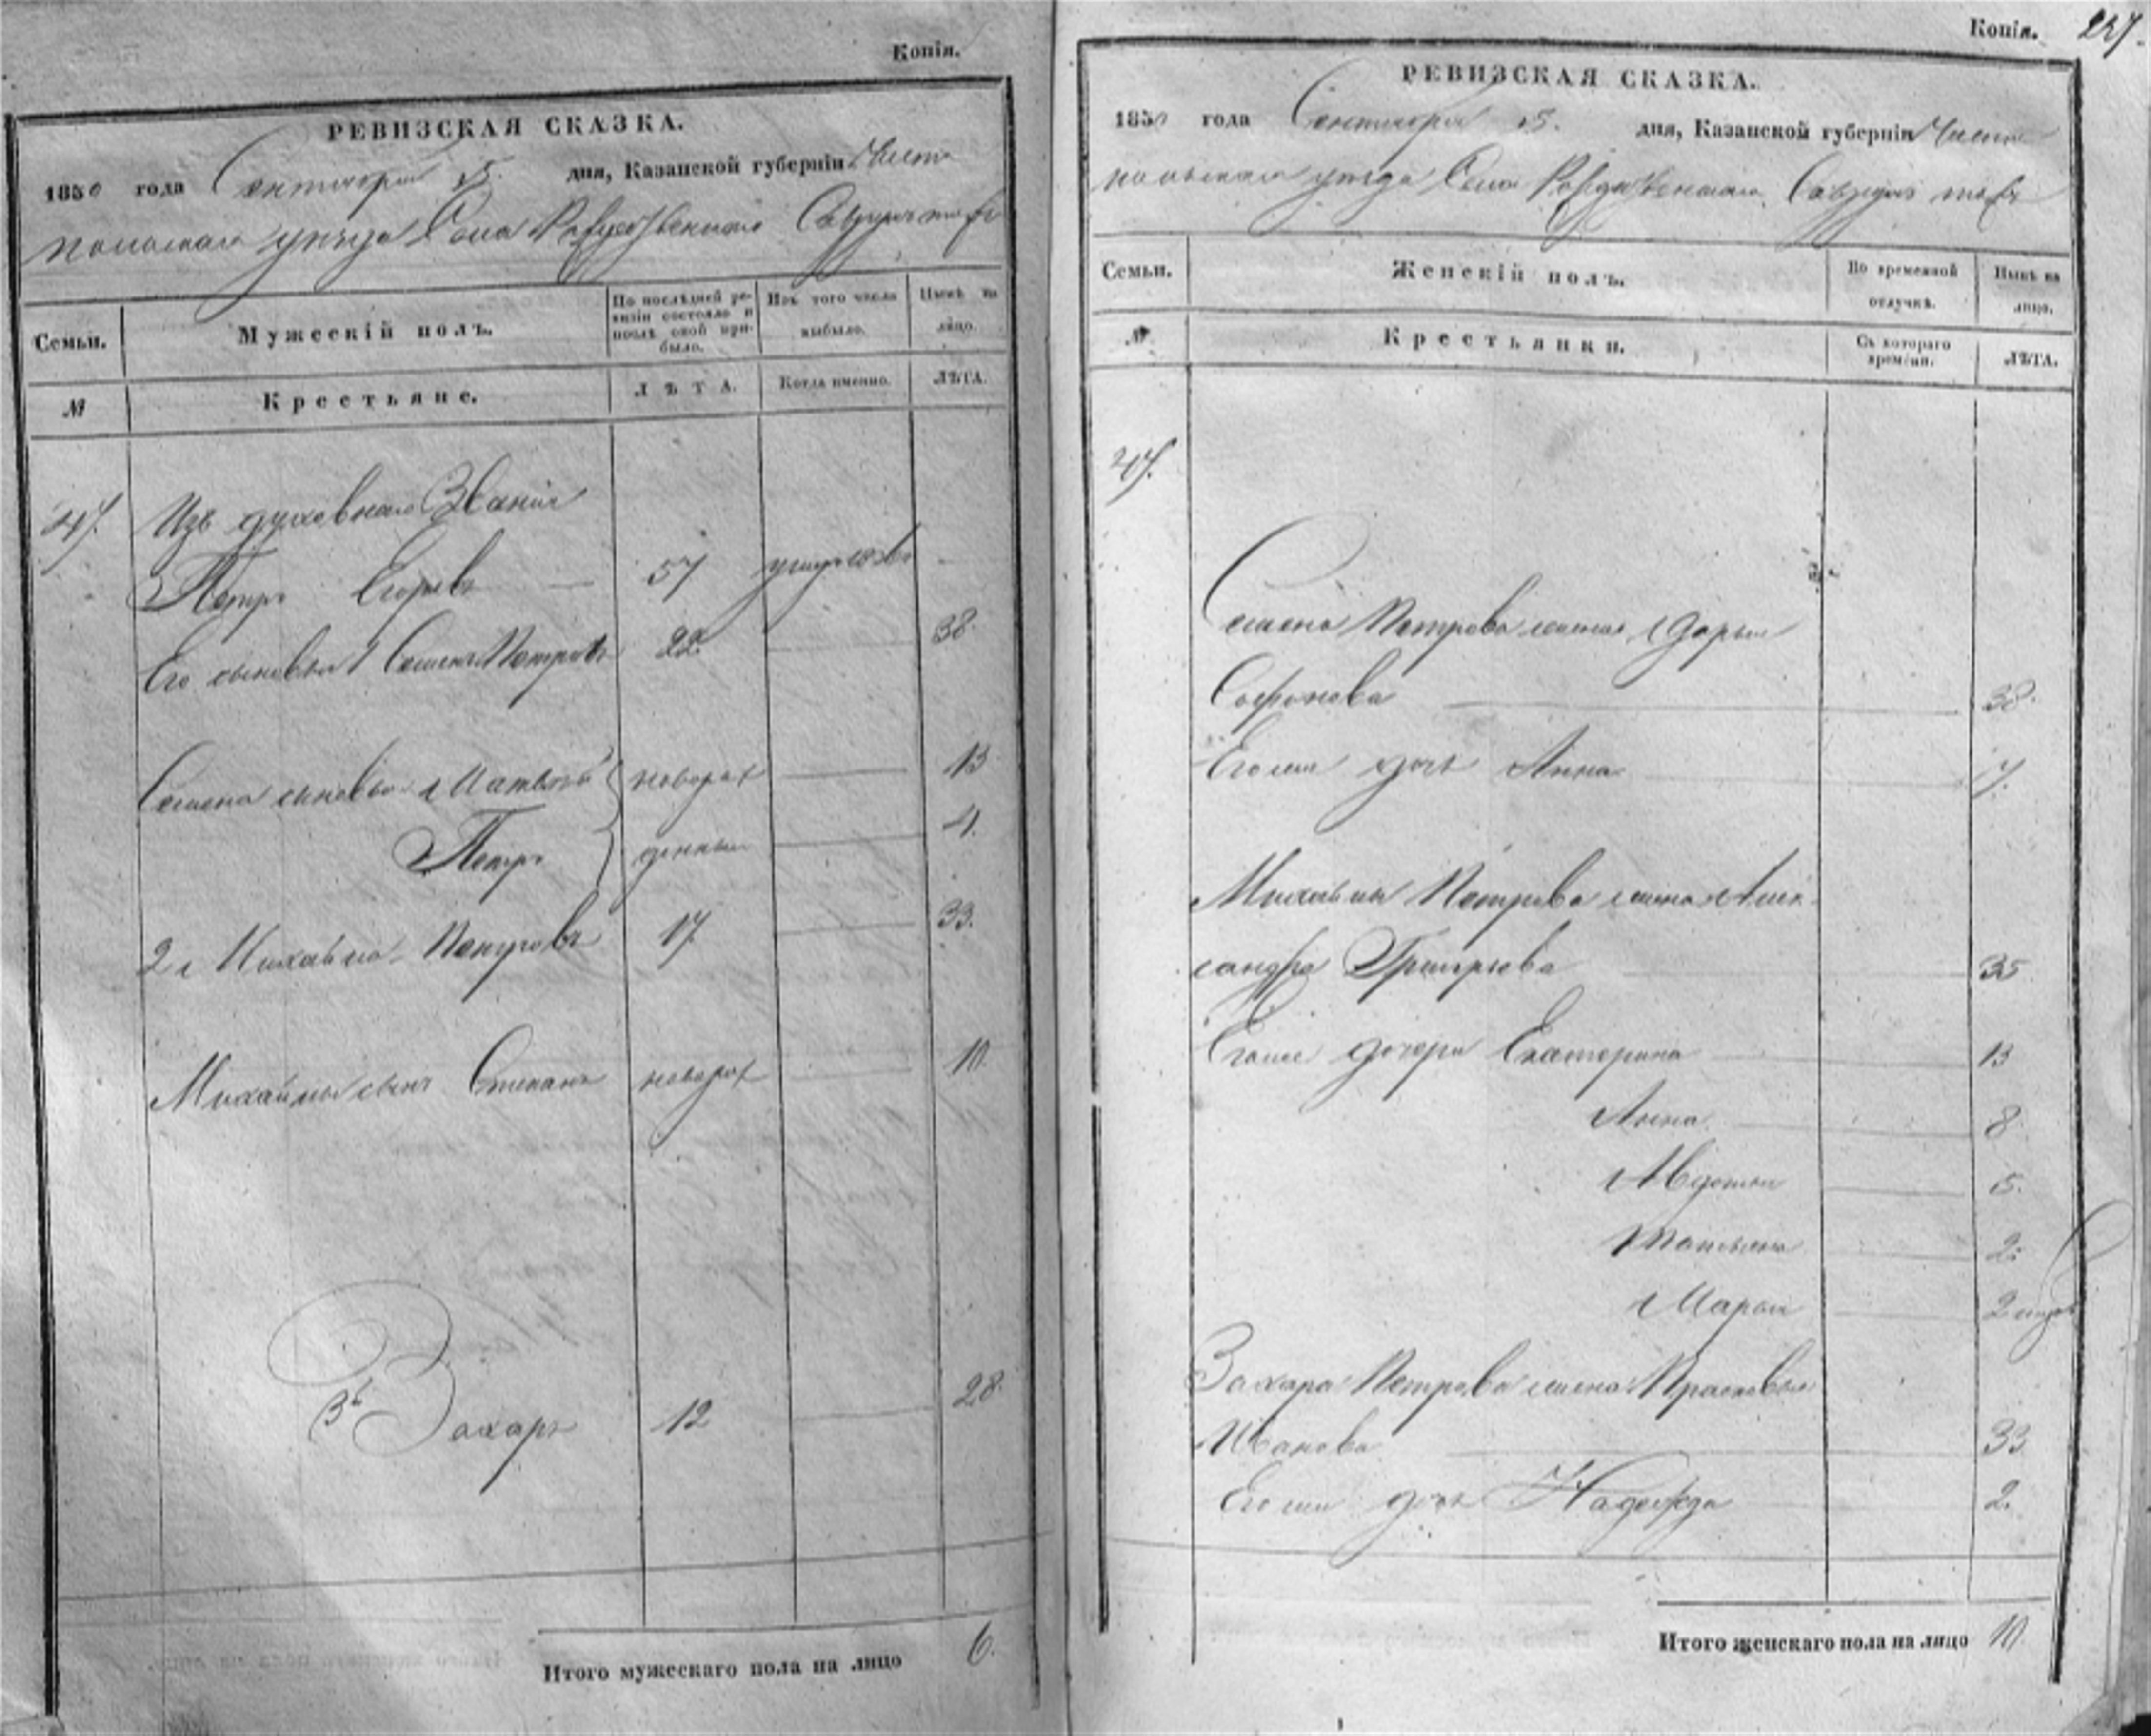 Копія.
РЕВИЗСКАЯ СКАЗКА.
1850 года Сентября 15. дня, Казанской губерніи Чисто
польскаго уѣзда Села Рождественскаго
Семьи.
Мужескій полъ.
По послѣдней ре-
визіи состояло и
послѣ оной при-
было.
Изъ того числа
выбыло.
Нынѣ на
лицо.
№
Крестьяне.
ЛѢТА.
Когда именно.
ЛѢТА.
47. Изъ духовнаго Званія
Петръ Егоровъ — 57
Его сыновья 1 Семенъ Петровъ 22 38.
Семена сыновья 1 Матвей новорож 13
Петръ денные 4.
2й Михайло Петровъ 17. 33.
Михайлы сынъ Степанъ новорож 10.
3й Захаръ 12 28.
Итого мужескаго пола на лицо 6.
Копія. 227.
РЕВИЗСКАЯ СКАЗКА.
1850 года Сентября 15. дня, Казанской губерніи Чисто
польскаго уѣзда Села Рождественскаго
Семьи.
Женскій полъ.
Во временной
отлучкѣ.
Нынѣ на
лицо.
№
Крестьянки.
Съ котораго
времени.
ЛѢТА.
47.
Семена Петрова жена Дарья
Софонова 38.
Его же дочь Анна 7.
Михайлы Петрова жена Алек
сандра Григорьева 35
Его же дочери Екатерина 13
Анна 8
Авдотья 5.
Татьяна 2.
Марья 2 нед
Захара Петрова жена Прасковья
Иванова 33
Его же дочь Надежда 2.
Итого женскаго пола на лицо 10.